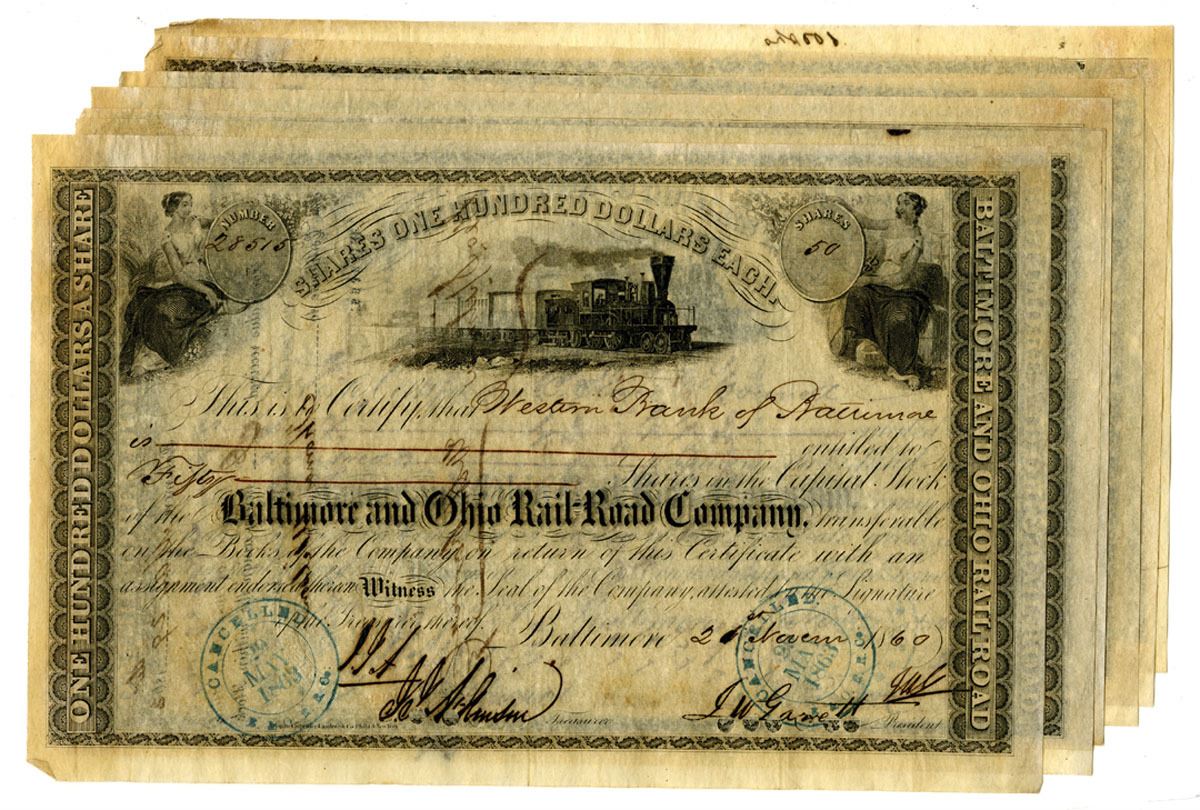 100 Sha
NUMBER
28515
SHARES ONE HUNDRED DOLLARS EACH.
SHARES
50
ONE HUNDRED DOLLARS A SHARE
BALTIMORE AND OHIO RAIL ROAD
This is to Certify, that Western Bank of Baltimore
is entitled to
Fifty Shares in the Capital Stock
of the Baltimore and Ohio Rail-Road Company, transferable
on the Books of the Company on return of this Certificate with an
assignment endorsed thereon Witness the Seal of the Company, attested by the Signature
of the Treasurer thereof.
Baltimore 2 Novem 1860
CANCELLED
MAY
1863
CANCELLED
MAY
1863
J W Garrett
Treasurer
President